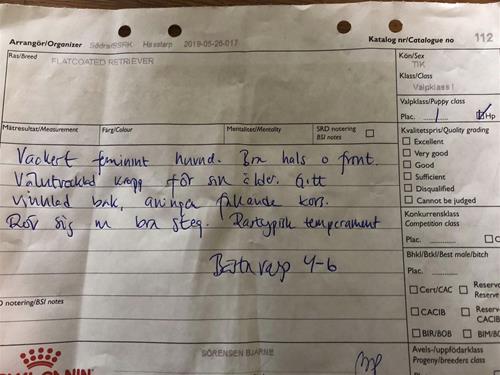 Arrangör/Organizer Södra/SSRK Hässtorp 2019-05-26-017 Katalog nr/Catalogue no 112
Ras/Breed FLATCOATED RETRIEVER
Kön/Sex
TIK
Klass/Class
Valpklass I
Valpklass/Puppy class
Plac. 1 Hp
Mätresultat/Measurement Färg/Colour Mentalitet/Mentality SRD notering/BSI notes
Kvalitetspris/Quality grading
Excellent
Very good
Good
Sufficient
Disqualified
Cannot be judged
Vackert feminint huvud. Bra hals o front.
Välutvecklad kropp för sin ålder. Gott
vinklad bak, aningen fallande kors.
Rör sig m bra steg. Rastypisk temperament
4-6
Konkurrensklass
Competition class
Plac. C
Bhkl/Btkl/Best male/bitch
Plac.
Cert/CAC Reserv
Reserve
CACIB Reserv
CACIB
BIR/BOB BIM/B
D notering/BSI notes
SÖRENSEN BJARNE
Avels-/uppfödarklass
Progeny/breeders class